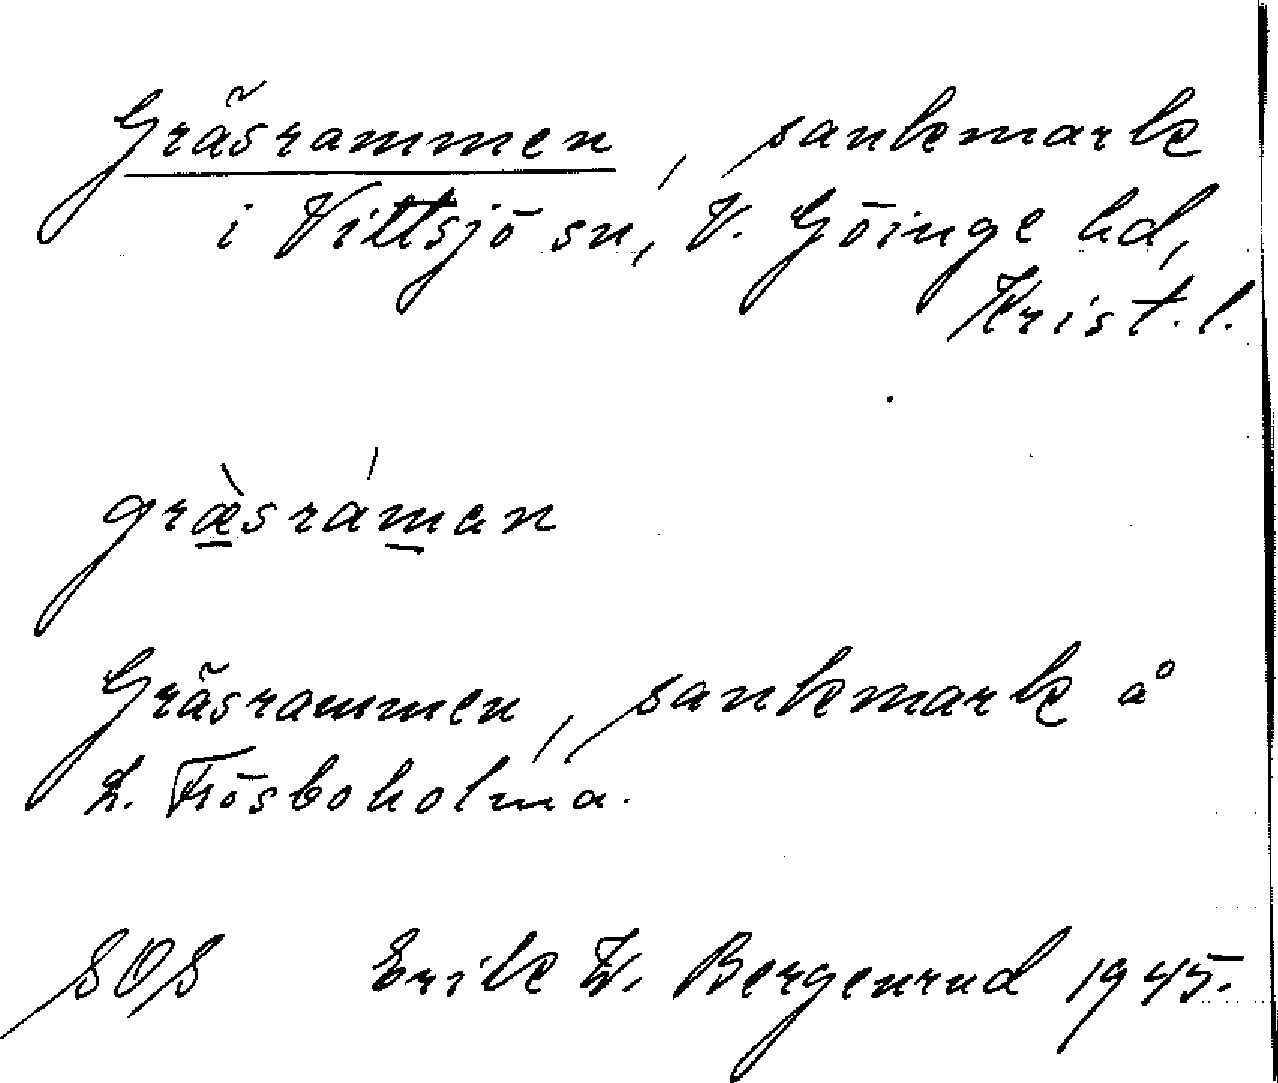 Gräsrammen, sankmark
i Vittsjö sn, V. Göinge hd,
Krist. l.
græ̀sráman
Gräsrammen, sankmark å
L. Frösboholma.
SOS Erik W. Bergenrud 1945.